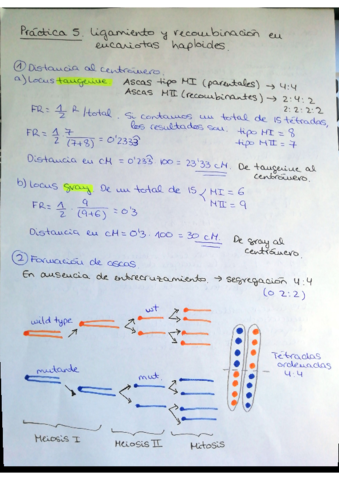 Práctica 5. Ligamiento y recombinación en
eucariotas haploides.
① Distancia al centrómero.
a) Locus tangerine. Ascas tipo MI (parentales) → 4:4
Ascas MII (recombinantes) → 2:4:2
2:2:2:2
FR = 1/2 R/total. Si contamos un total de 15 tétradas,
los resultados son: tipo MI = 8
tipo MII = 7
FR = 1/2 7/(7+8) = 0'2333
Distancia en cM = 0'2333·100 = 23'33 cM. De tangerine al
centrómero.
b) Locus gray. De un total de 15 MI = 6
MII = 9
FR = 1/2 · 9/(9+6) = 0'3
Distancia en cM = 0'3 · 100 = 30 cM. De gray al
centrómero.
② Formación de ascas
En ausencia de entrecruzamiento → segregación 4:4
(o 2:2)
wild type
wt
mutante
mut
Tétradas
ordenadas
4:4
Meiosis I
Meiosis II
Mitosis